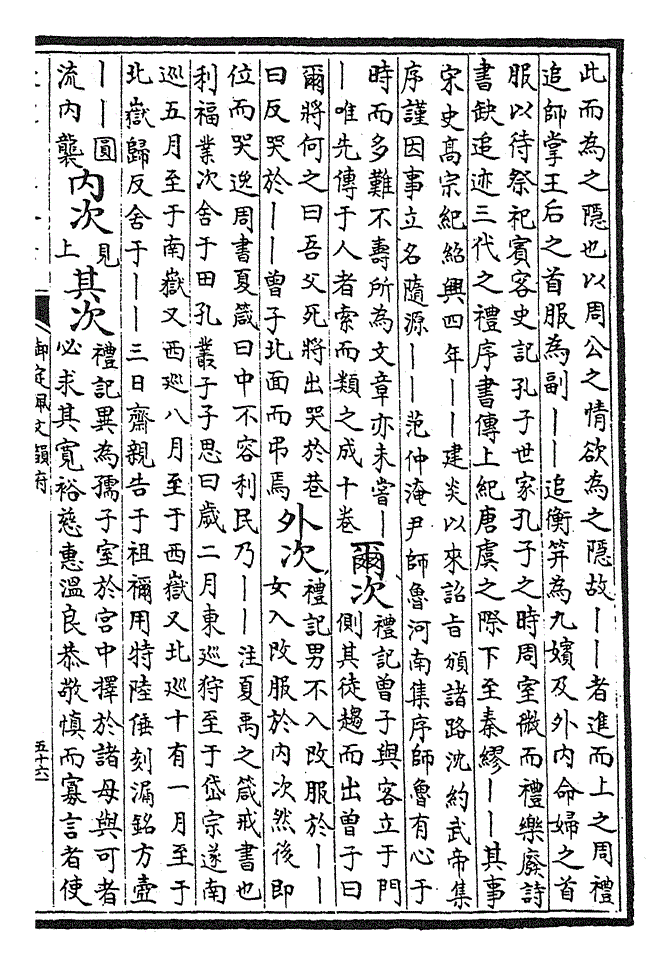 此而為之隱也以周公之情欲為之隱故｜｜者進而上之周禮
追師掌王后之首服為副｜｜追衡笄為九嬪及外內命婦之首
服以待祭祀賓客史記孔子世家孔子之時周室微而禮樂廢詩
書缺追迹三代之禮序書傳上紀唐虞之際下至秦繆｜｜其事
宋史高宗紀紹興四年｜｜建炎以來詔旨頒諸路沈約武帝集
序謹因事立名隨源｜｜范仲淹尹師魯河南集序師魯有心于
時而多難不壽所為文章亦未嘗｜
｜唯先傳于人者索而類之成十卷
爾次
禮記曾子與客立于門
側其徒趨而出曾子曰
爾將何之曰吾父死將出哭於巷
曰反哭於｜｜曾子北面而弔焉
外次
禮記男不入改服於｜｜
女入改服於內次然後即
位而哭逸周書夏箴曰中不容利民乃｜｜注夏禹之箴戒書也
利福業次舍于田孔叢子子思曰歲二月東巡狩至于岱宗遂南
巡五月至于南嶽又西巡八月至于西嶽又北巡十有一月至于
北嶽歸反舍于｜｜三日齋親告于祖禰用特陸倕刻漏銘方壺
｜｜圓
流內襲
內次
見
上
其次
禮記異為孺子室於宮中擇於諸母與可者
必求其寬裕慈惠溫良恭敬慎而寡言者使
御定佩文韻府
五十六